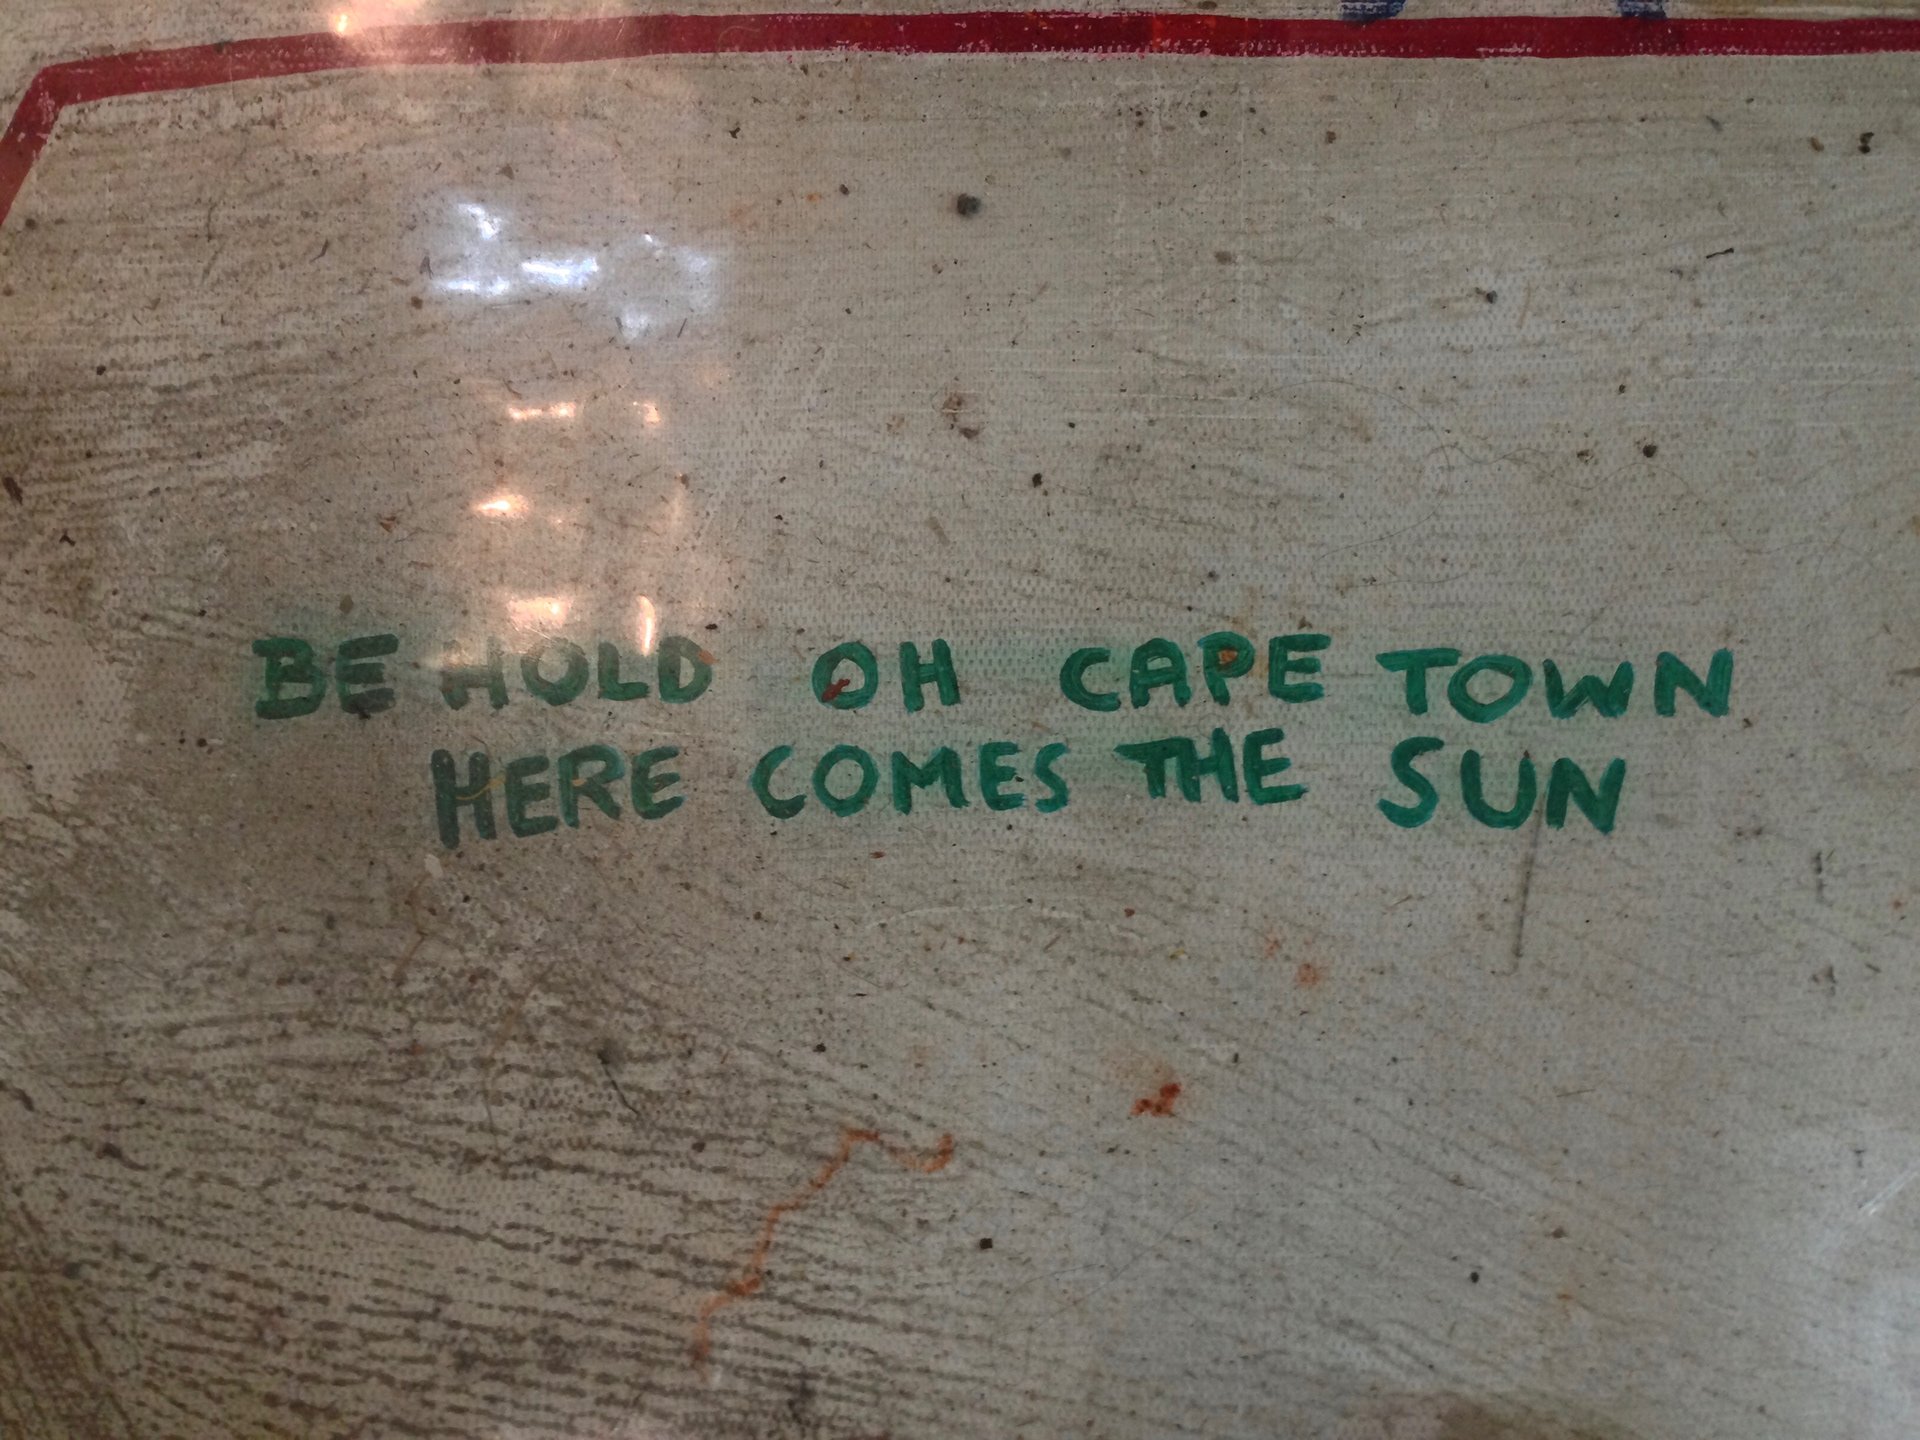 BE HOLD OH CAPE TOWN
HERE COMES THE SUN